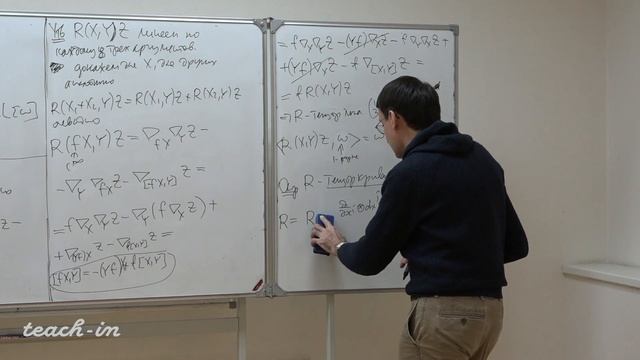 Утв R(X,Y)Z линеен по
каждому из трех аргументов.
докажем для X, для других
аналогично
R(X₁+X₂,Y)Z = R(X₁,Y)Z + R(X₂,Y)Z
R(fX,Y)Z = ∇_{fX} ∇_Y Z −
− ∇_Y ∇_{fX} Z − ∇_{[fX,Y]} Z =
= f∇_X∇_Y Z − ∇_Y (f∇_X Z) +
[fX,Y] = −(Yf)X + f[X,Y]
= f∇_X∇_Y Z − (Yf)∇_X Z − f∇_Y∇_X Z +
+ (Yf)∇_X Z − f∇_{[X,Y]} Z =
= f R(X,Y)Z
⇒ R - тензор типа
⟨R(X,Y)Z, ω⟩ =
1-форма
Опр R - тензор крив
R = R ∂/∂xⁱ ⊗ dx
teach-in